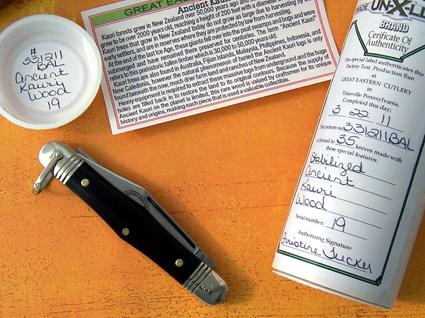 #
331211
BAL
Ancient
Kauri
Wood
19
GREAT EA
Ancient Kauri
Kauri forests grew in New Zealand over 50,000 years ago and
grow to be over 2000 years old, reaching a height of 200 feet with a diameter
Kauri trees that grow in New Zealand today but grow as large due to harvesting by
early settlers, and are in reserves where they are protected now from harvesting.
At the end of the last Ice Age, these giants fell over into the peat swamps and bogs and were
sealed and have remained there preserved for centuries. The term "Ancient Kauri"
refers to this prehistoric fallen timber which is 30,000 to 50,000 years old.
Kauri trees are also found in Australia, Fijian Islands, Malaysia, Philippines, Indonesia, and
New Caledonia, however the natural phenomenon of buried the Ancient Kauri logs is only
found beneath the now, mostly, level farm land and ranches of New Zealand.
Heavy equipment is required to extract these massive logs from underground and the
holes are filled back in to restore the land to its original contours. Since the supply of
Ancient Kauri on the planet is limited, this rare wood is sought by craftsmen for its unique
history and origins, making each piece that is used a valuable collectible.
UN-X-LD
BRAND
Certificate Of
Authenticity
This special label authenticates this
factory Test Production Run
at
GREAT EASTERN CUTLERY
in
Titusville Pennsylvania.
Completed this day:
3 22 11
331211BAL
limited to 35 knives made with
these special features:
Stabilized
Ancient
Kauri
Wood
Serial number: 19
Authorizing Signature
Christine Tucker